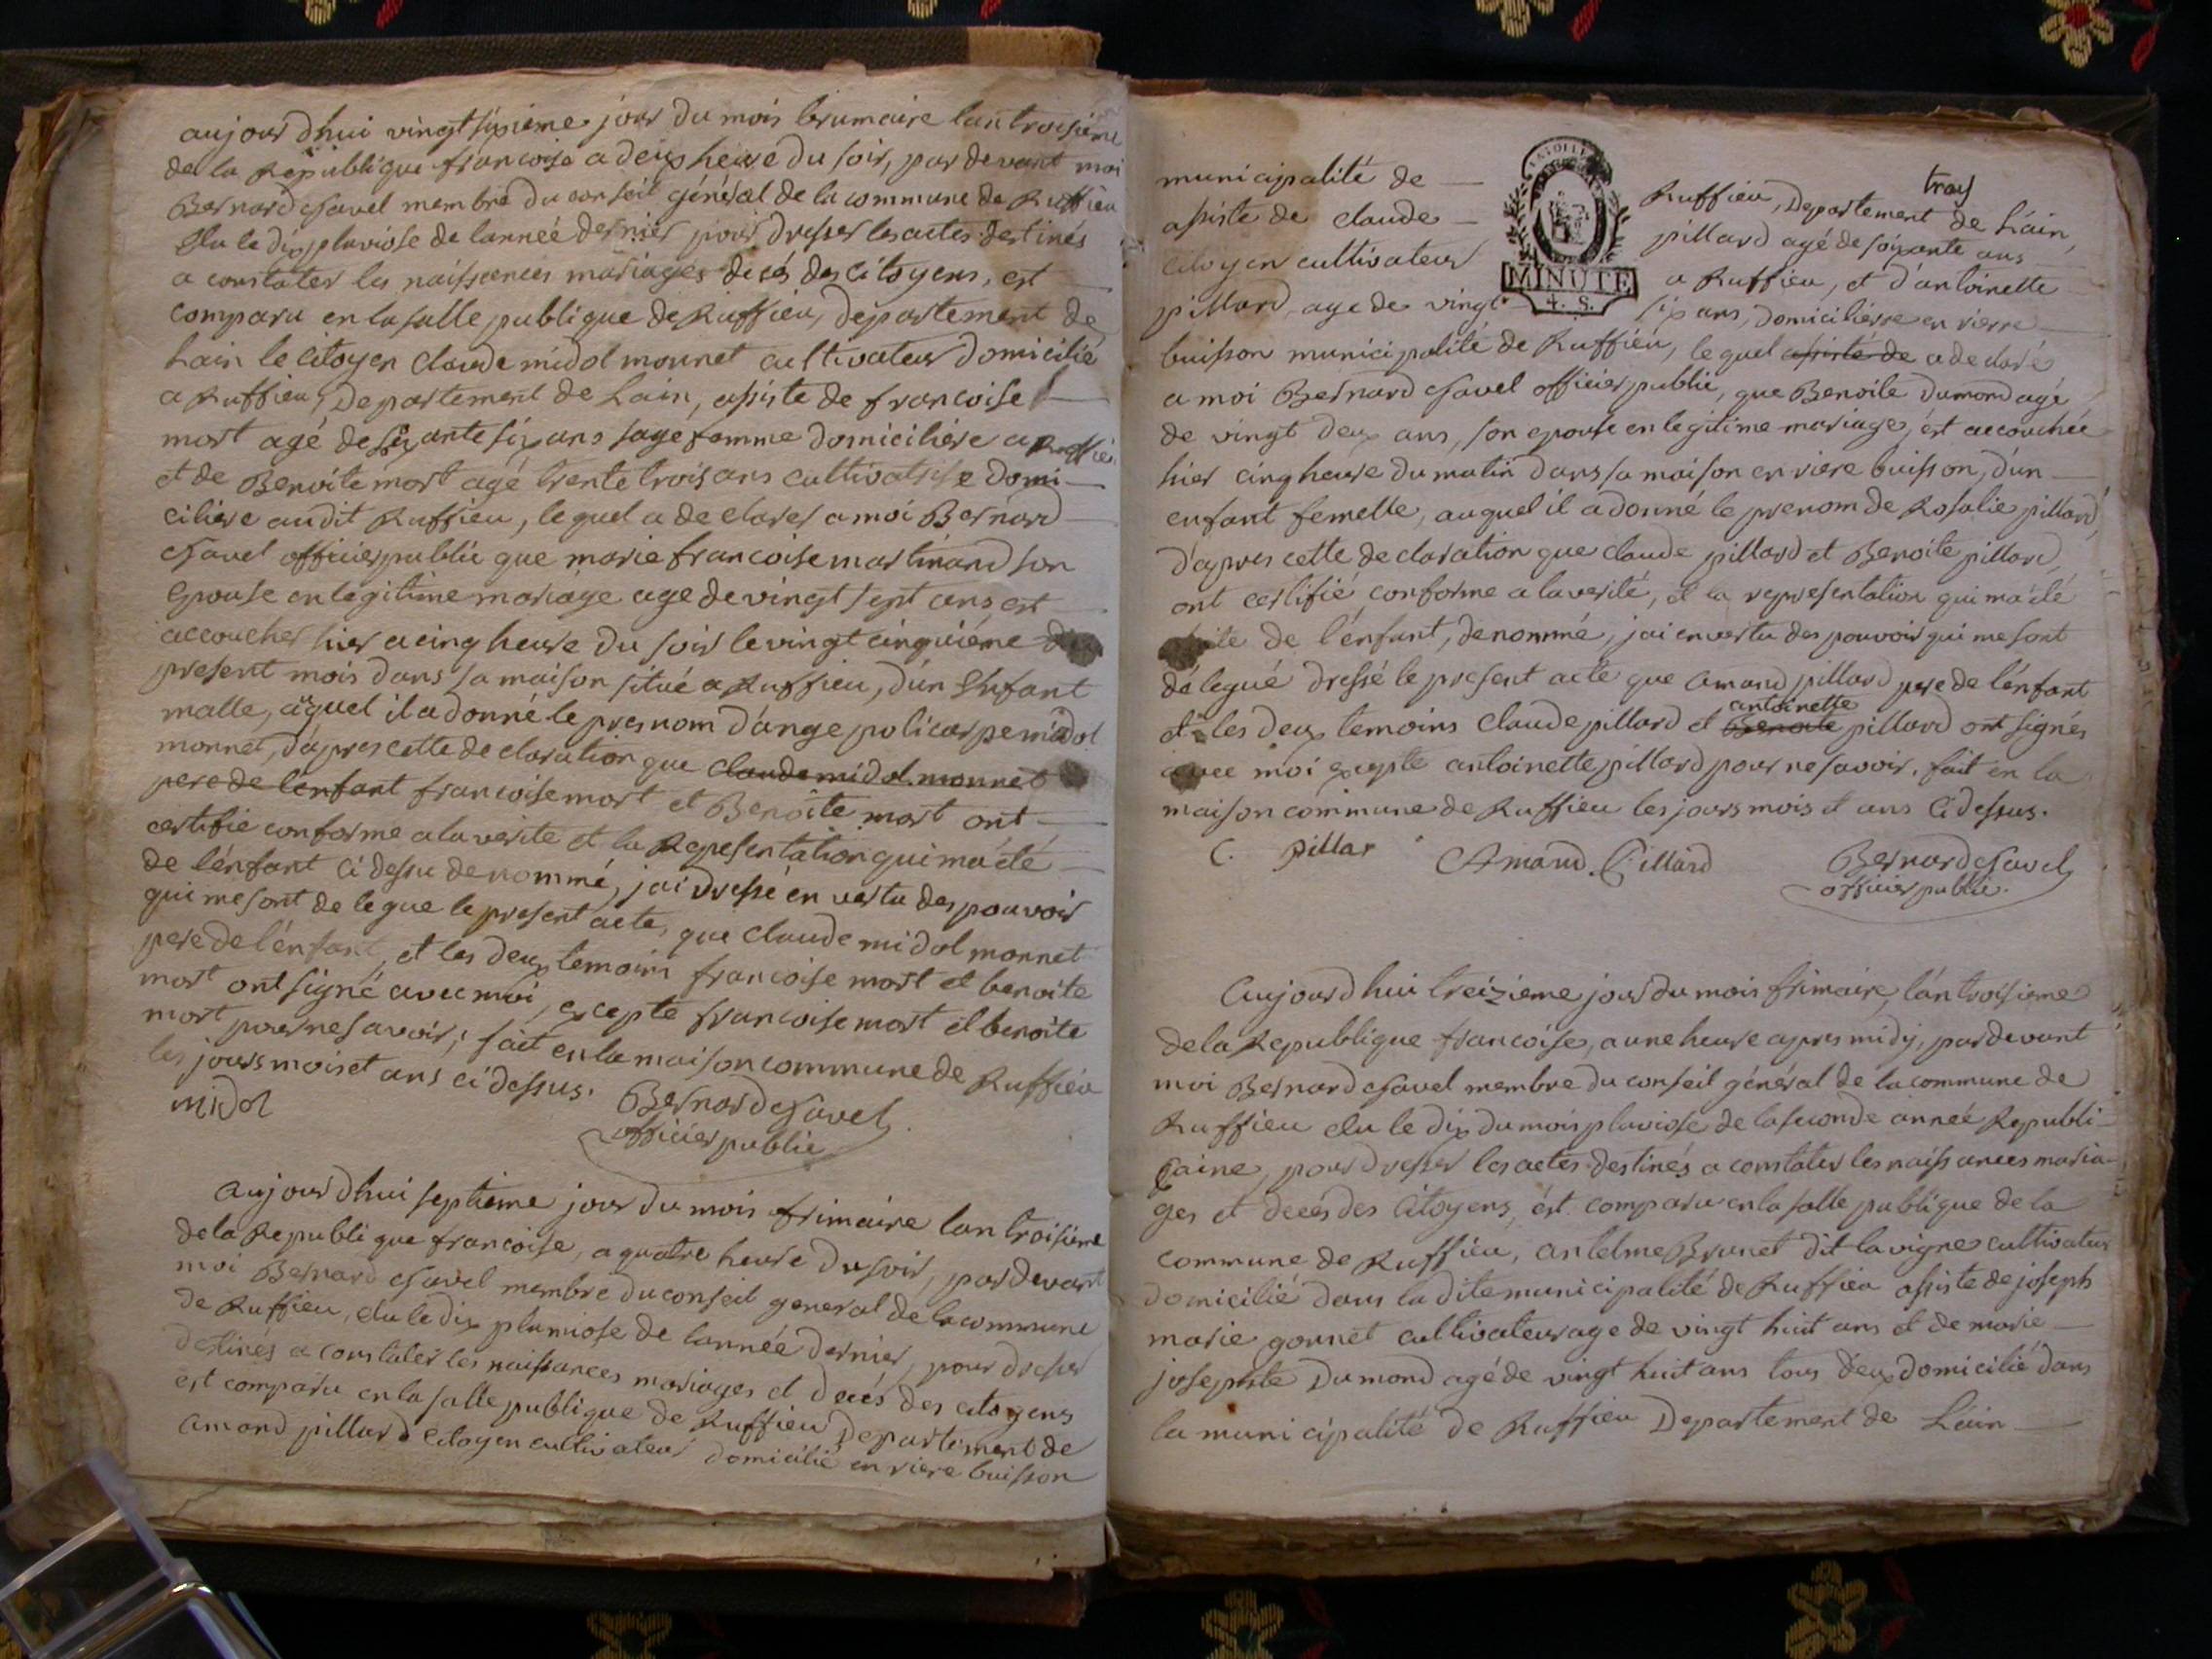 aujourdhui vingt sixieme jour du mois brumaire lan troisieme
de la Republique francoise a deux heure du soir, par devant moi
Bernard Savel membre du conseil général de la commune de Ruffieu
Elu le dix pluviose de lanneé dernier pour dresser les actes destinés
a constater les naissances mariages decés des Citoyens, est
comparu en la salle publique de Ruffieu, departement de
Lain le Citoyen Claude midol monnet cultivateur domicilié
a Ruffieu, Departement de Lain, assiste de francoise
mort agé de sixante six ans sage femme domiciliere a Ruffieu
et de Benoite mort agé trente trois ans cultivatrise domi-
ciliere audit Ruffieu, le quel a declarer a moi Bernard
Savel officier public que marie francoise martinand son
Epouse en legitime mariage age de vingt sept ans, est
accoucher hier a cinq heure du soir le vingt cinquiéme du
present mois dans sa maison situé a Ruffieu, dún Enfant
malle, aquel il a donné le presnom d'ange policarpe midol
monnet, dápres cette declaration que claude midol monnet
pere de lenfant francoise mort et Benoite mort ont
certifie conforme a la verite et la Representation qui má été
de lénfant Ci dessu denommé, jai dressé en vertu des pouvoir
qui me sont delegue le present acte, que Claude midol monnet
pere de lénfant, et les deux temoins francoise mort et benoite
mort ont signé avec moi, excepte francoise mort et benoite
mort pour ne savoir; fait en la maison commune de Ruffieu
les jours mois et ans ci dessus.
midol
Bernard Savel
officier public
aujourdhui septieme jour du mois frimaire lan troisieme
de la Republique francoise, a quatre heure du soir, par devant
moi Bernard Savel membre du conseil general de la commune
de Ruffieu, elu le dix pluviose de lannée dernier, pour dresser
destinés a constater les naissances mariages et decés des citoyens
est comparu en la salle publique de Ruffieu departement de
amand pillard citoyen cultivateur domicilié en riere buisson
trois
municipalité de Ruffieu, Departement de Láin,
assiste de claude pillard agé de soixante ans
citoyen cultivateur a Ruffieu, et d'antoinette
pillard, age de vingt six ans, domiciliere en riere
MINUTE
4. S.
buisson municipalité de Ruffieu, le quel assisté de a declaré
a moi Bernard Savel officier public, que Benoite dumond agé
de vingt deux ans, son epouse en legitime mariage, ést accouchée
hier cinq heure du matin dans sa maison en riere buisson, dún
enfant femelle, auquel il a donné le prenom de Rosalie pillard,
d'apres cette declaration que claude pillard et Benoite pillard,
ont certifié conforme a la verité, et la representation qui má été
faite de l'énfant, denommé, jai en vertu des pouvoir qui me sont
délegué dressé le present acte que amand pillard pere de lénfant
antoinette
et les deux temoins claude pillard et Benoite pillard ont signés
avec moi excepte antoinette pillard pour ne savoir. fait en la
maison commune de Ruffieu les jours mois et ans Ci dessus.
C. pillar Amand Pillard Bernard Savel
officier public.
Aujourdhui treizieme jour du mois frimaire, lán troisieme
de la Republique francoise, a une heure apres midy, par devant
moi Bernard Savel membre du conseil général de la commune de
Ruffieu elu le dix du mois pluviose de la seconde anneé Republi-
Caine, pour dresser les actes destinés a constater les naissances maria-
ges et decés des Citoyens, ést comparu en la salle publique de la
commune de Ruffieu, antelme Brunet dit lavigne cultivateur
domicilié dans la dite municipalité de Ruffieu assiste de joseph
marie gonnet cultivateur age de vingt huit ans et de marie
josephte Dumond agé de vingt huit ans tous deux domicilié dans
la municipalité de Ruffieu Departement de Láin